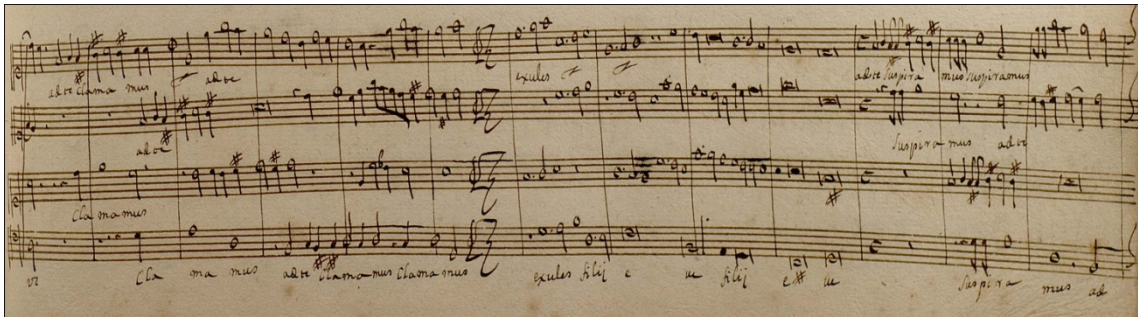 ad te clama mus ad te exules ad te suspira mus suspiramus
ad te suspira mus ad te
Cla ma mus
Cla ma mus ad te Clamamus Clama mus exules filij e ve filij e ve suspira mus ad